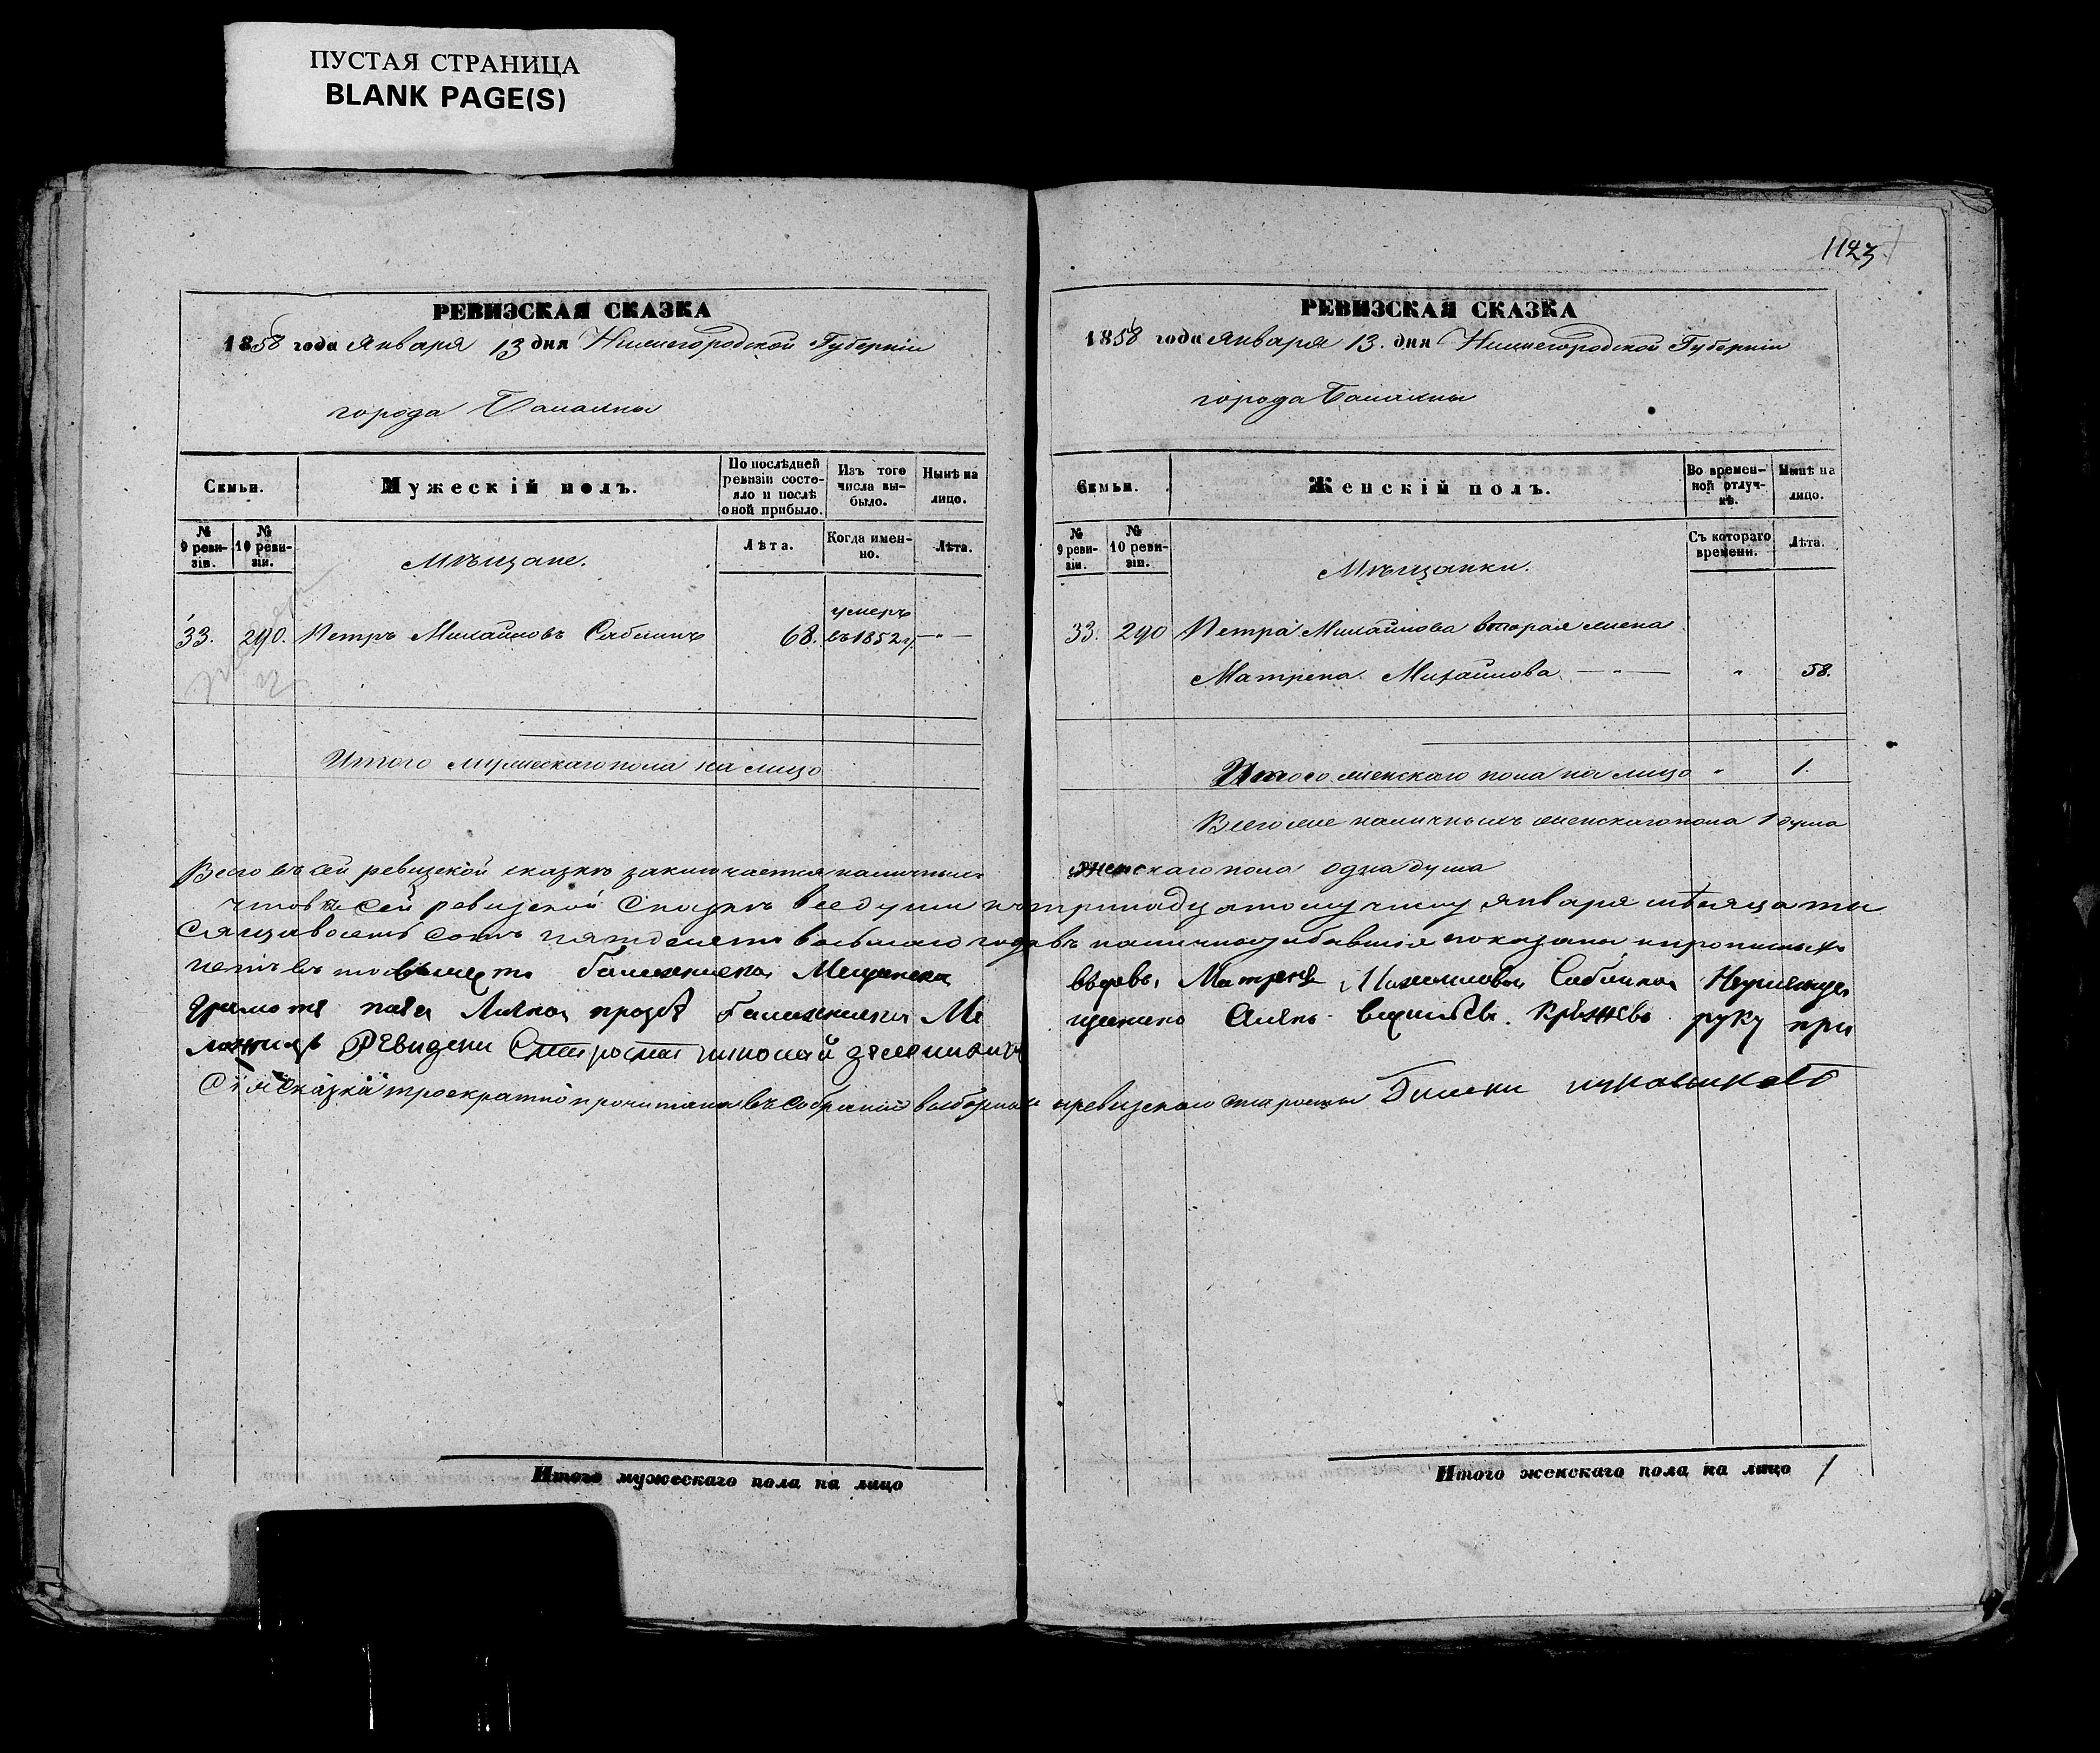 ПУСТАЯ СТРАНИЦА
BLANK PAGE(S)
РЕВИЗСКАЯ СКАЗКА
1858 года Января 13 дня Нижегородской Губерніи
города Балахны
Семьи.
Мужескій полъ.
По послѣдней ревизіи состояло и послѣ оной прибыло.
Изъ того числа выбыло.
Нынѣ на лицо.
№ 9 ревизіи.
№ 10 ревизіи.
Мѣщане.
Лѣта.
Когда именно.
Лѣта.
умеръ
33. 290. Петръ Михайловъ Сабанинъ 68. въ 1852 г. — " —
Итого мужескаго пола на лицо
1123
РЕВИЗСКАЯ СКАЗКА
1858 года Января 13. дня Нижегородской Губерніи
города Балахны
Семьи.
Женскій полъ.
Во временной отлучкѣ.
Нынѣ на лицо.
№ 9 ревизіи.
№ 10 ревизіи.
Мѣщанки.
Съ котораго времени.
Лѣта.
33. 290 Петра Михайлова вторая жена
Матрена Михайлова — " — " 58.
Итого женскаго пола на лицо " 1.
Всего же наличныхъ женскаго пола 1 душа
Всего въ сей ревизской сказкѣ заключается наличныхъ женскаго пола одна душа
Что въ сей ревизской Сказкѣ все души къ тринадцатому числу января мѣсяца ты
сяща восемь сотъ пятдесятъ восьмаго года въ наличности бывшія показаны и прописныхъ
нетъ въ томъ вместо балахнска Мещанска вдовы Матрены Михайловой Неумеющей
грамоте Балахнски Ме щанино руку при
ложилъ Ревизски Староста николай
Сія Сказка троекратно прочитана въ собраніи выборныхъ и ревизскаго старосты
Итого мужескаго пола на лицо
Итого женскаго пола на лицо 1